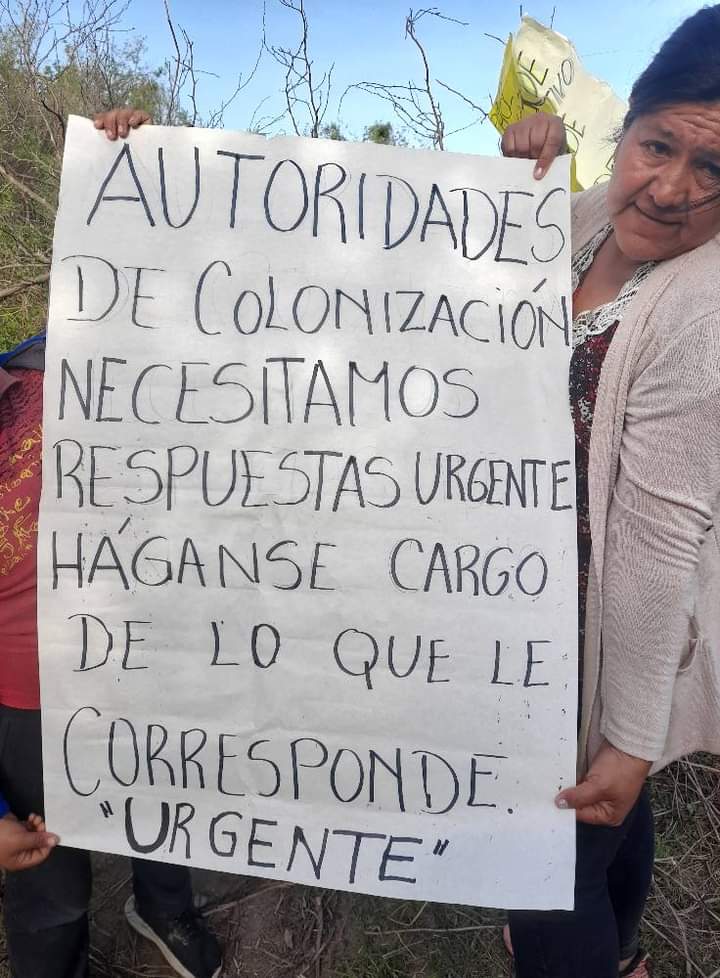 AUTORIDADES
DE COLONIZACIÓN
NECESITAMOS
RESPUESTAS URGENTE
HÁGANSE CARGO
DE LO QUE LE
CORRESPONDE.
"URGENTE"